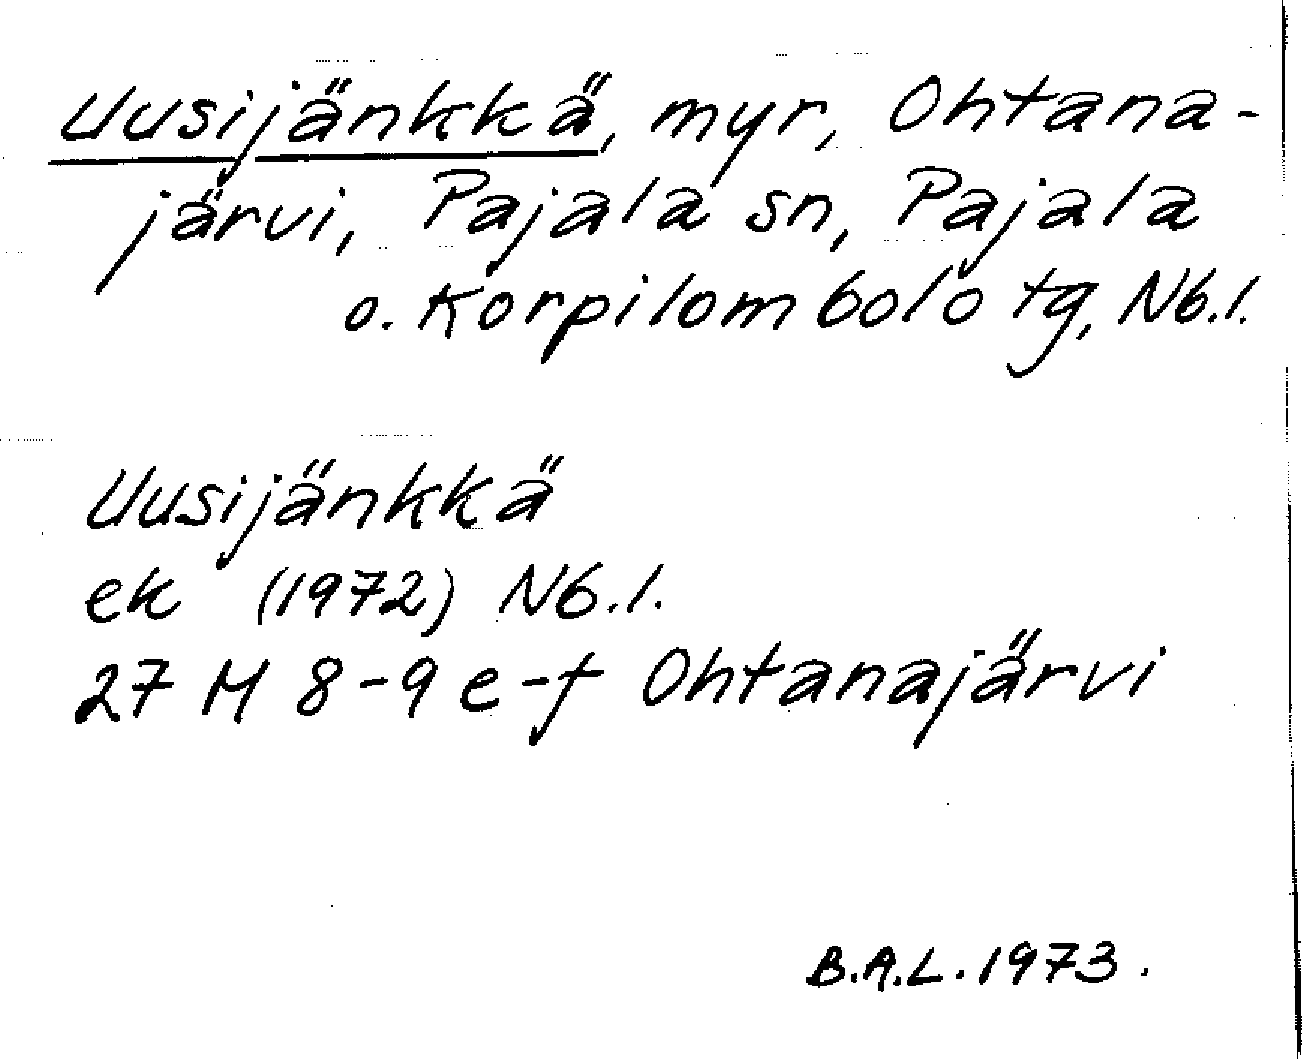 Uusijänkkä, myr, Ohtana-
järvi, Pajala sn, Pajala
o. Korpilombolo tg, Nb.l.
Uusijänkkä
ek (1972) Nb.l.
27 M 8-9 e-f Ohtanajärvi
B.A.L. 1973.